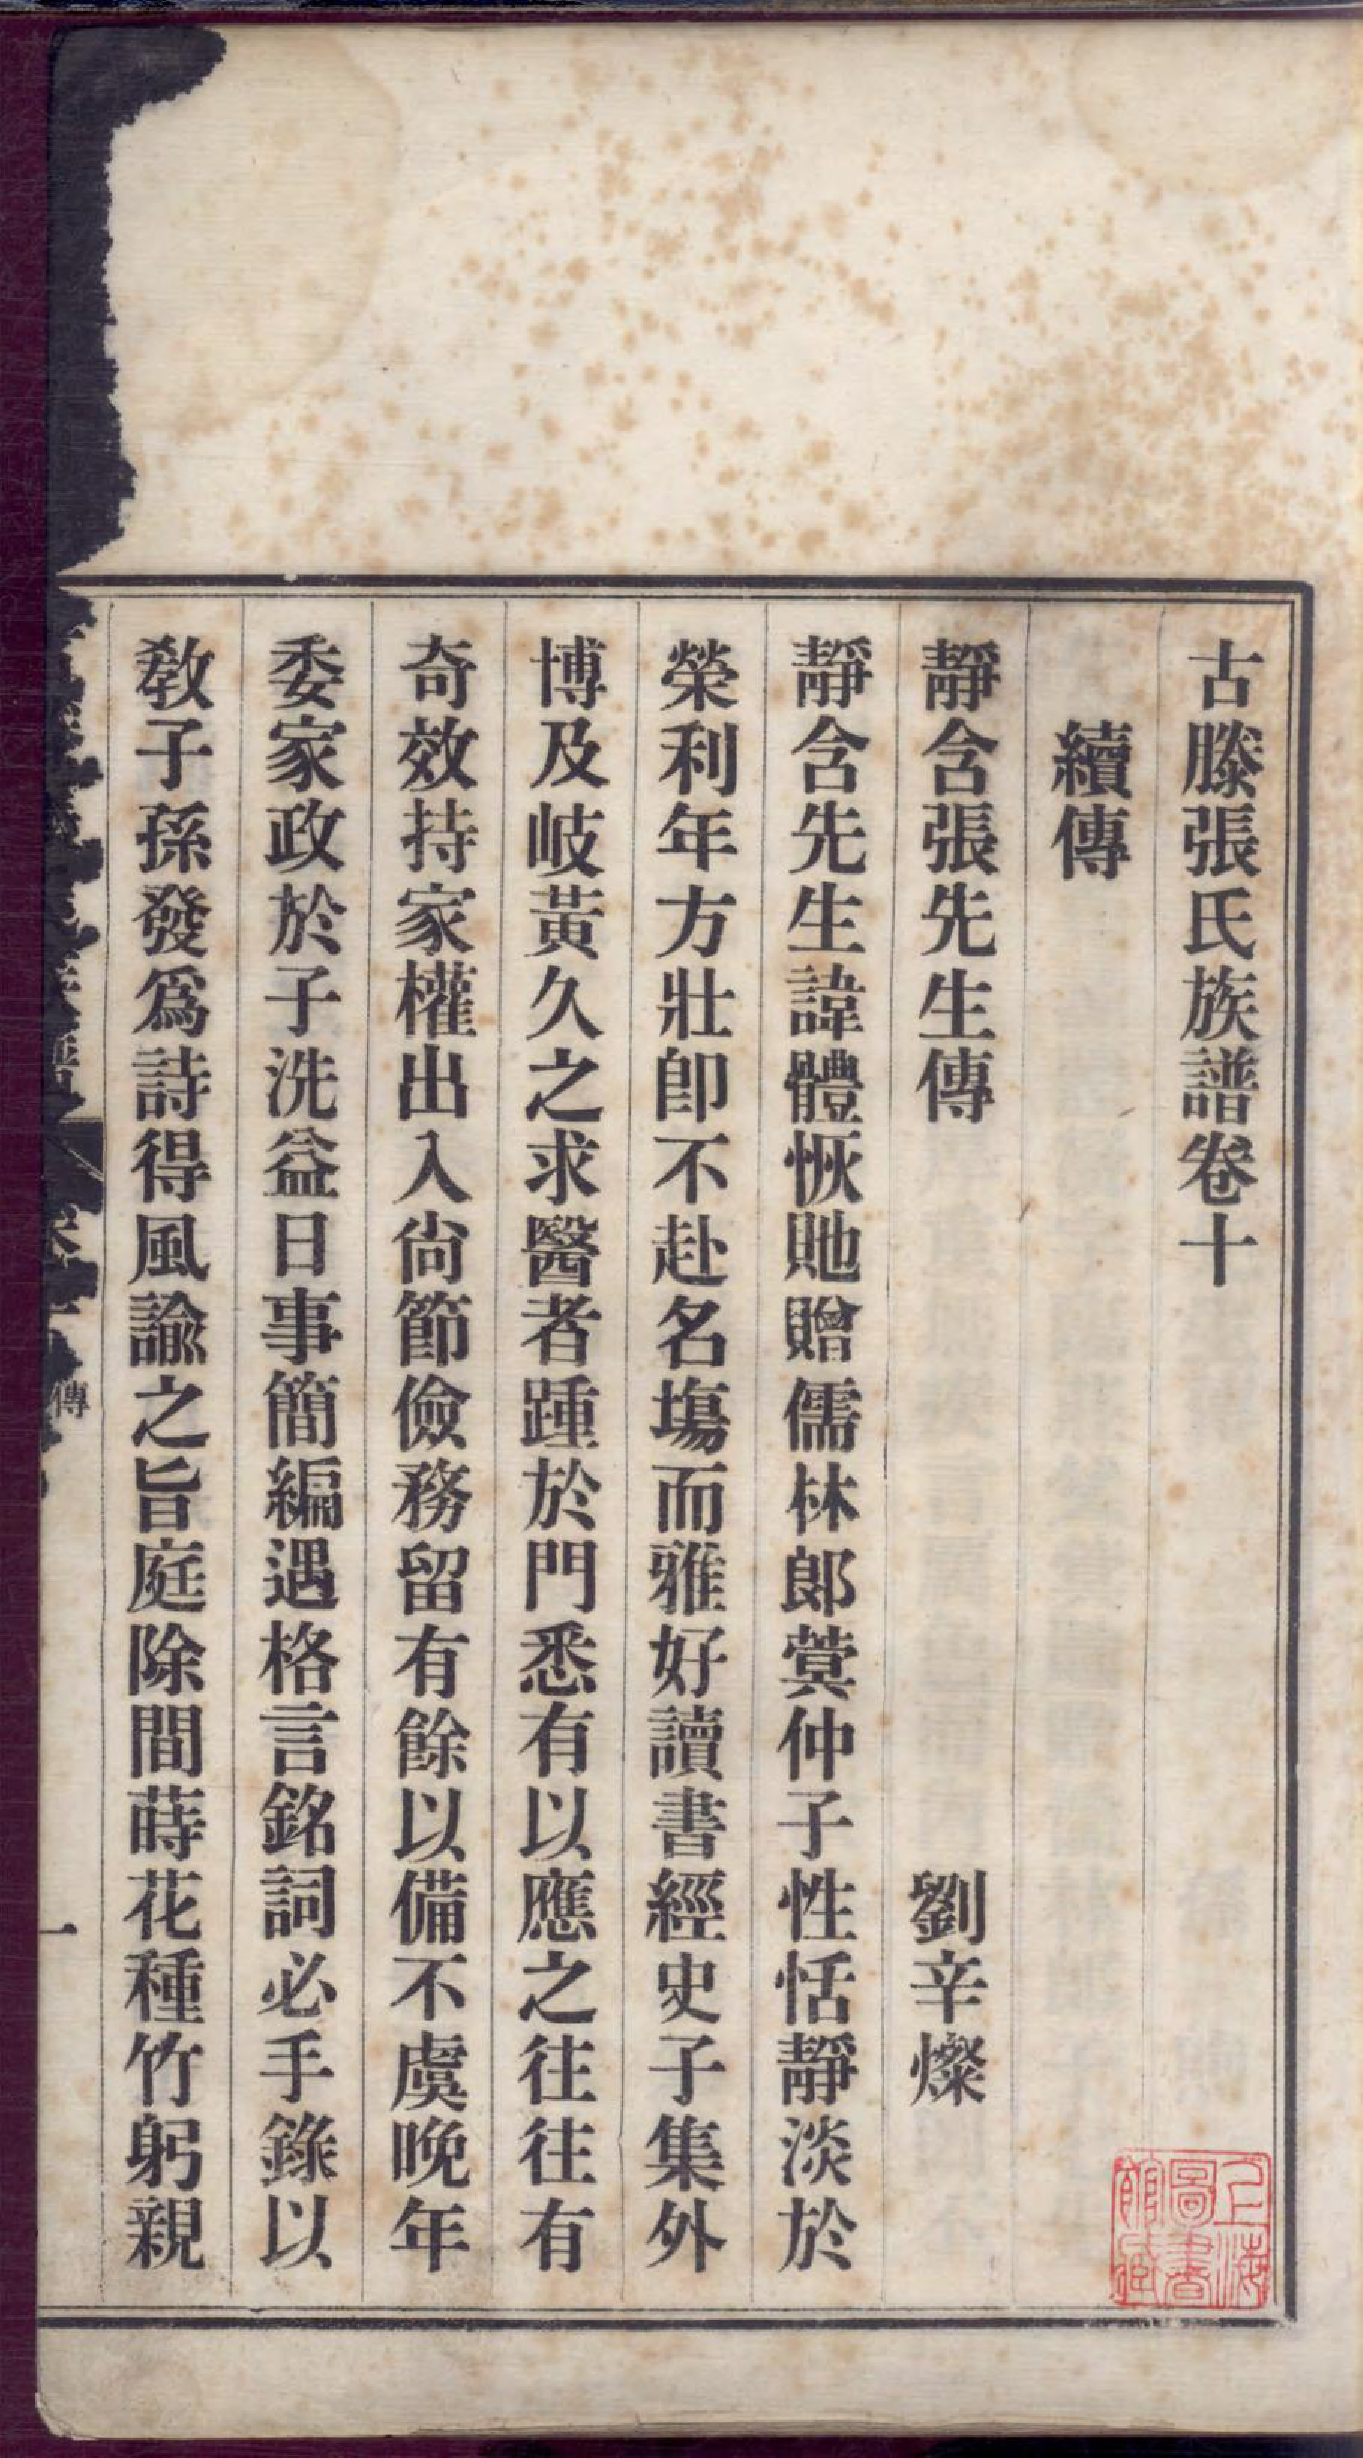 古滕張氏族譜卷十
續傳
靜含張先生傳 劉辛燦
靜含先生諱體恢貤贈儒林郎蓂仲子性恬靜淡於
榮利年方壯卽不赴名塲而雅好讀書經史子集外
博及岐黃久之求醫者踵於門悉有以應之往往有
奇效持家權出入尙節儉務留有餘以備不虞晚年
委家政於子洗益日事簡編遇格言銘詞必手錄以
敎子孫發爲詩得風諭之旨庭除間蒔花種竹躬親
傳
一
上海圖書館藏